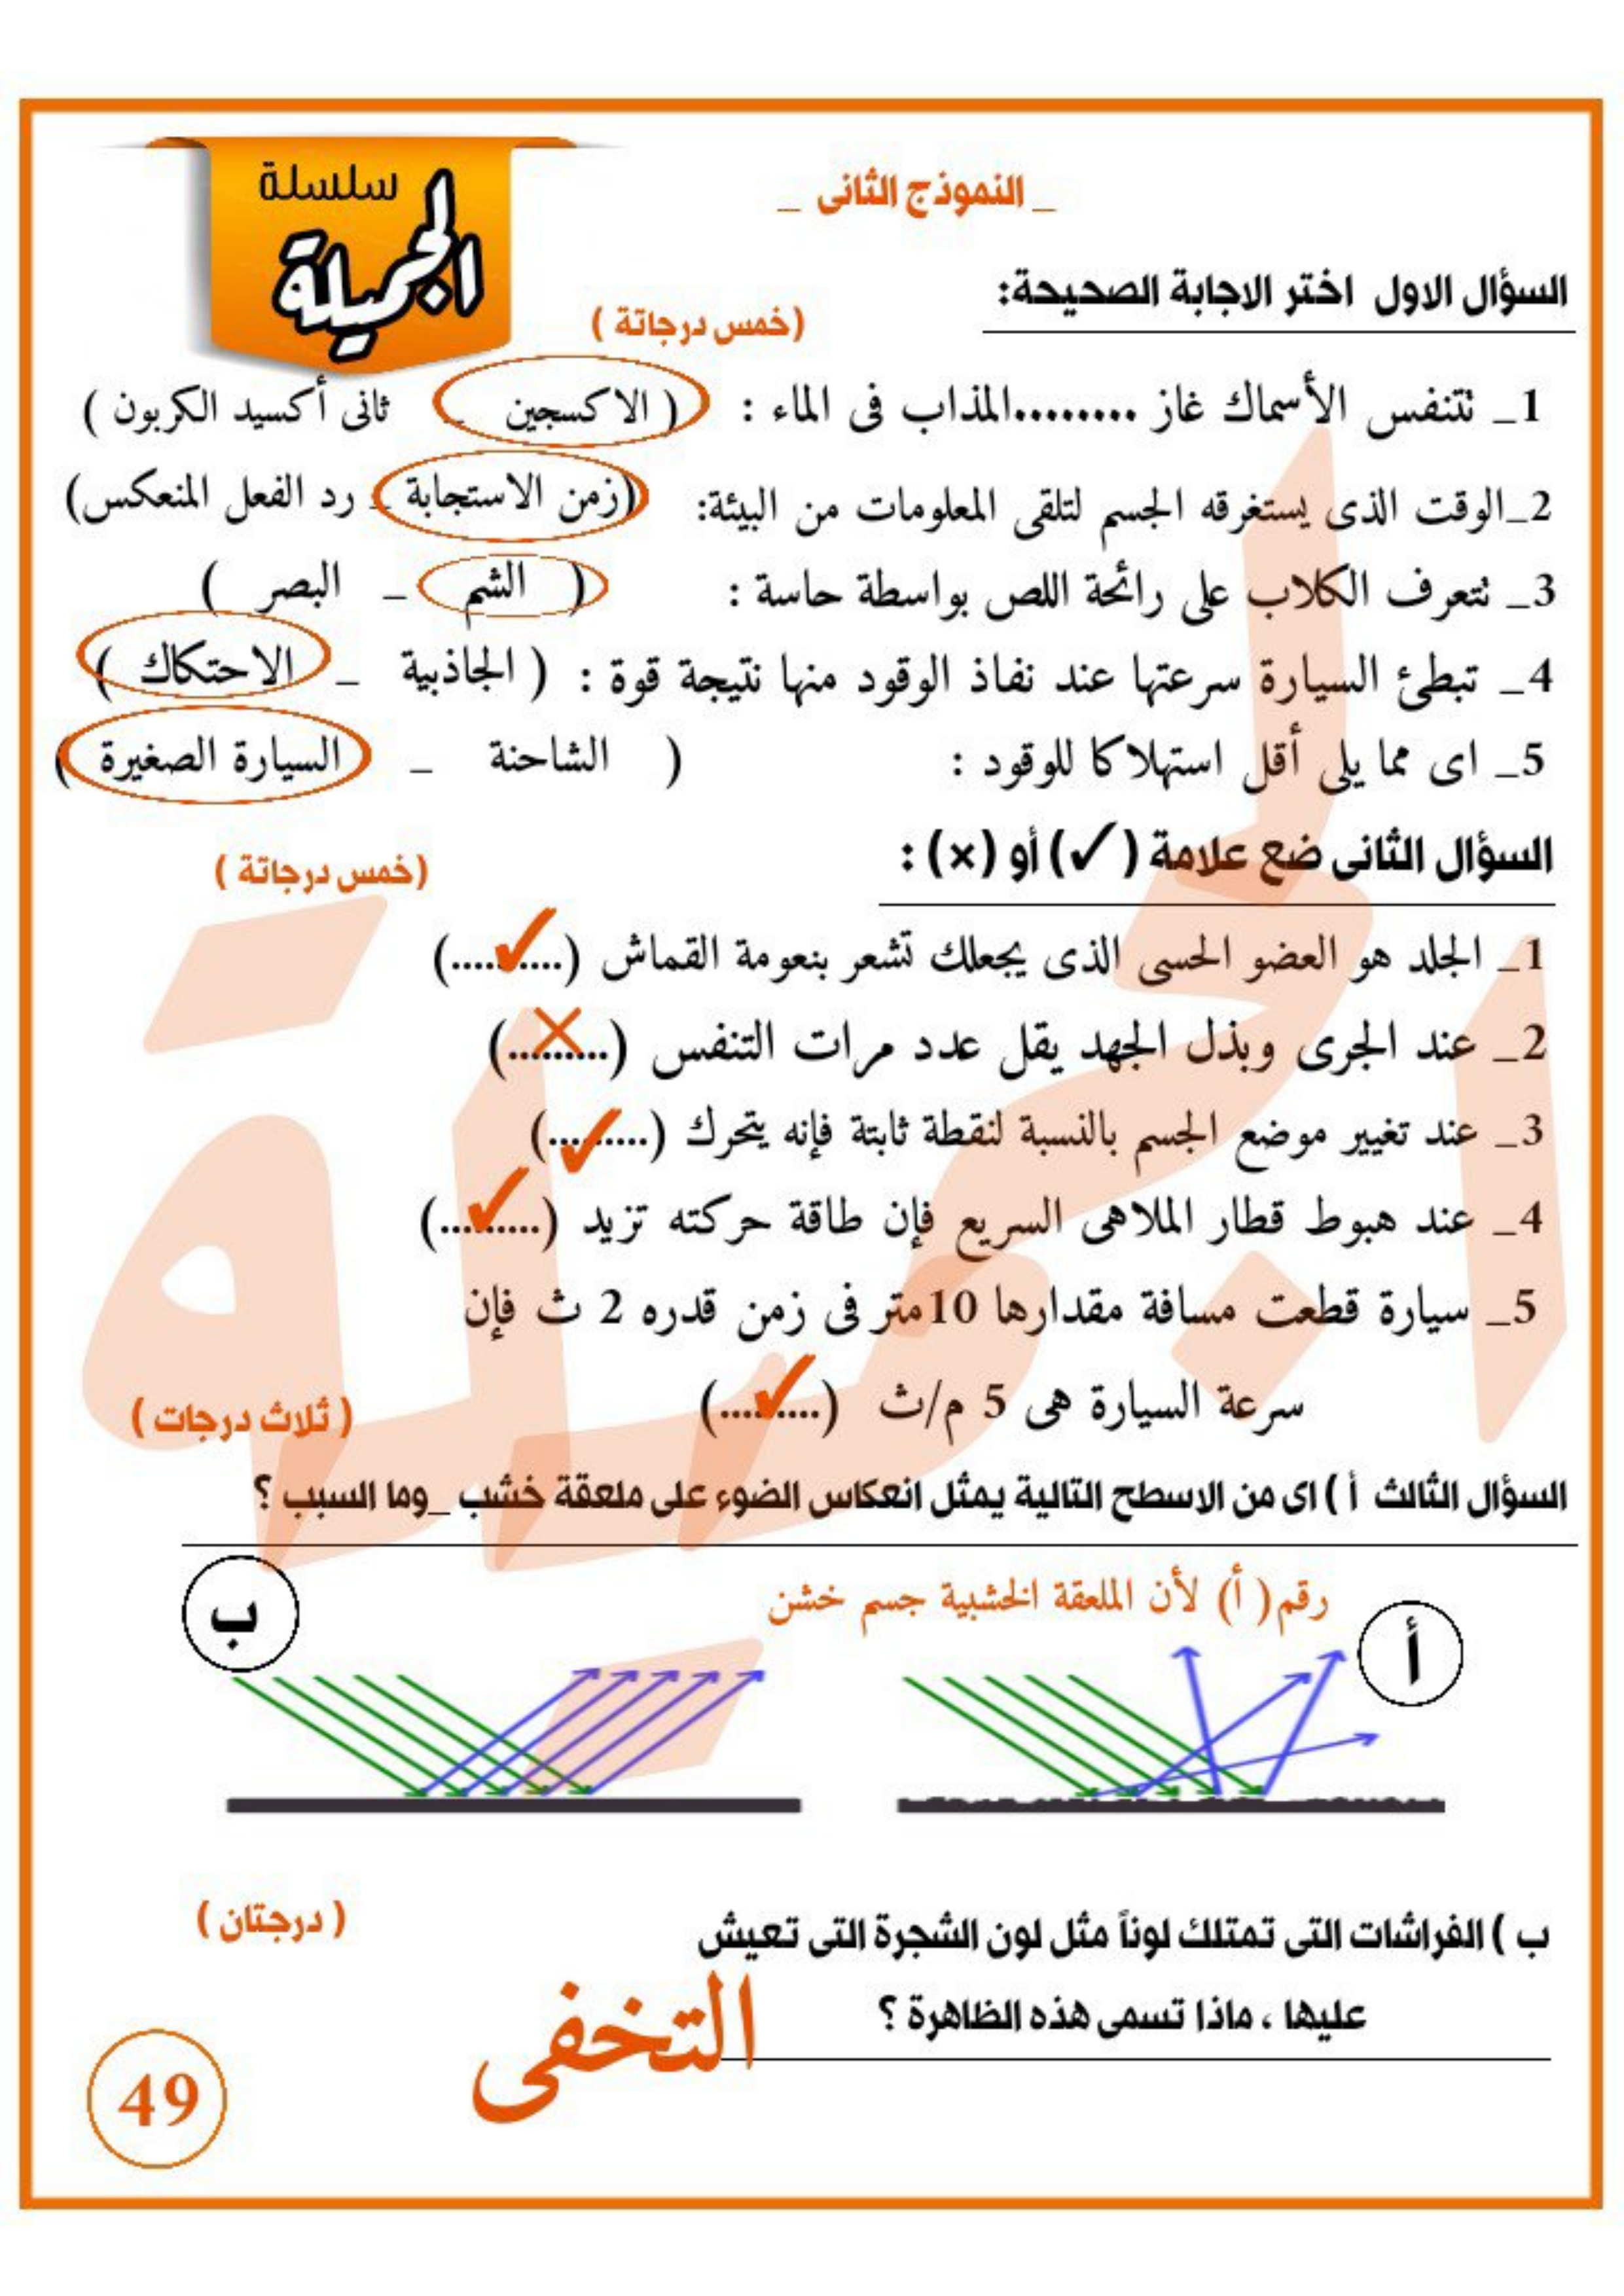 سلسلة
الجميلة
_ النموذج الثانى _
السؤال الاول اختر الاجابة الصحيحة:
(خمس درجاتة )
1_ نتنفس الأسماك غاز ........المذاب فى الماء : ( الاكسجين _ ثانى أكسيد الكربون )
2_الوقت الذى يستغرقه الجسم لتلقى المعلومات من البيئة: (زمن الاستجابة _ رد الفعل المنعكس)
3_ نتعرف الكلاب على رائحة اللص بواسطة حاسة : ( الشم _ البصر )
4_ تبطئ السيارة سرعتها عند نفاذ الوقود منها نتيجة قوة : ( الجاذبية _ الاحتكاك )
5_ اى مما يلى أقل استهلاكا للوقود : ( الشاحنة _ السيارة الصغيرة )
السؤال الثانى ضع علامة (✓) أو (×) :
(خمس درجاتة )
1_ الجلد هو العضو الحسى الذى يجعلك تشعر بنعومة القماش (....✓....)
2_ عند الجرى وبذل الجهد يقل عدد مرات التنفس (...×...)
3_ عند تغيير موضع الجسم بالنسبة لنقطة ثابتة فإنه يتحرك (...✓....)
4_ عند هبوط قطار الملاهى السريع فإن طاقة حركته تزيد (...✓....)
5_ سيارة قطعت مسافة مقدارها 10متر فى زمن قدره 2 ث فإن
سرعة السيارة هى 5 م/ث (...✓...)
( ثلاث درجات )
السؤال الثالث أ ) اى من الاسطح التالية يمثل انعكاس الضوء على ملعقة خشب _وما السبب ؟
رقم( أ) لأن الملعقة الخشبية جسم خشن
أ
ب
ب ) الفراشات التى تمتلك لوناً مثل لون الشجرة التى تعيش
( درجتان )
عليها ، ماذا تسمى هذه الظاهرة ؟
التخفى
49
الجميلة